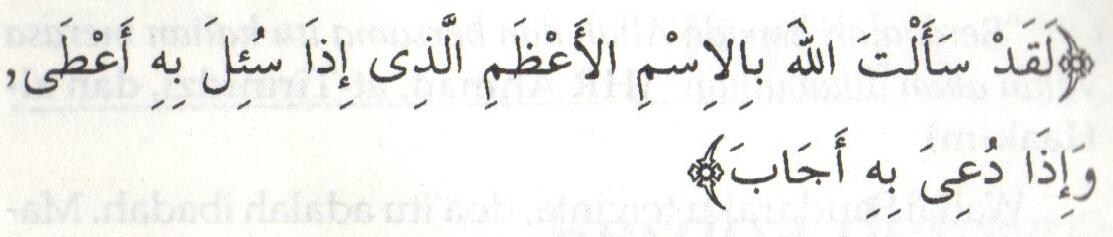 ﴿لَقَدْ سَأَلْتَ اللهَ بِالِاسْمِ الأَعْظَمِ الَّذِى إِذَا سُئِلَ بِهِ أَعْطَى,
وَإِذَا دُعِى بِهِ أَجَابَ﴾